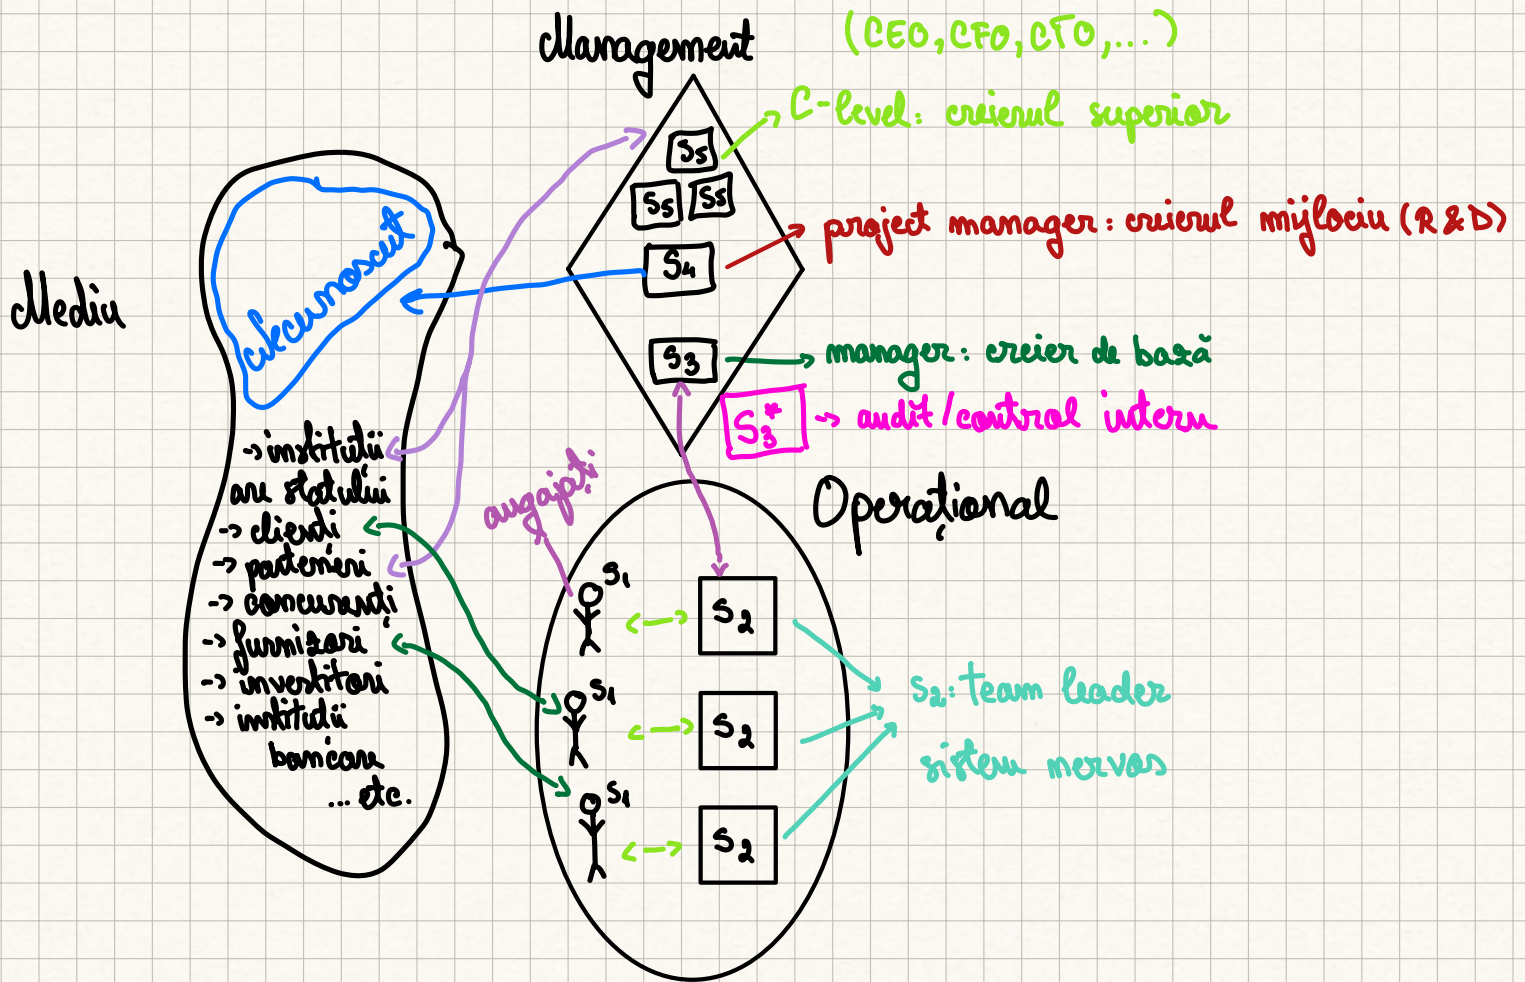 Management
(CEO, CFO, CTO, ...)
C-level: creierul superior
S5
S5 S5
project manager: creierul mijlociu (R&D)
S4
Necunoscut
Mediu
manager: creier de bază
S3
S3* -> audit/control intern
-> instituții
ale statului
-> clienți
-> parteneri
-> concurenți
-> furnizori
-> investitori
-> instituții
bancare
... etc.
angajați
Operațional
S1
S2
S1
S2
S1
S2
S2: team leader
sistem nervos